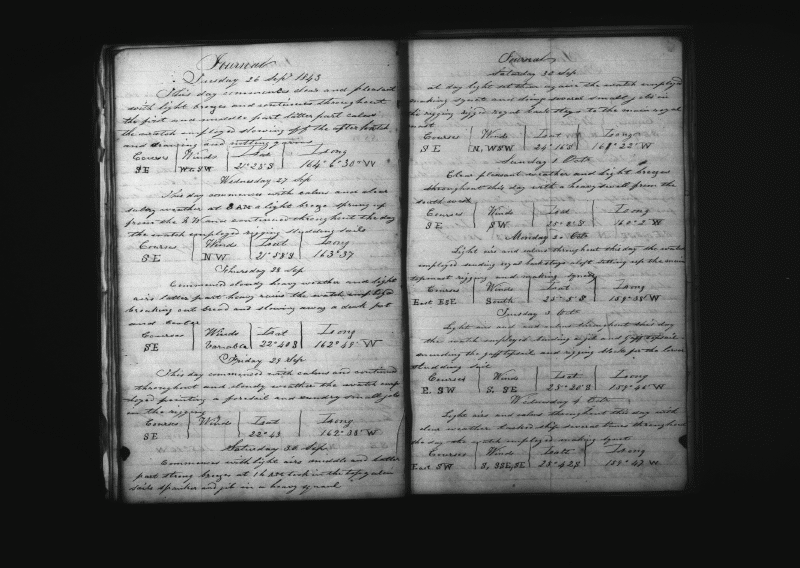 Journal
Tuesday 26 Sept 1843
This day commences clear and pleasant
with light breeze and continues throughout
the first and middle part latter part calm
the watch employed stowing off the after hatch
and cleaning and nothing more
Courses Winds Lat Long
SE WSW 21°25 S 164°6'30" W
Wednesday 27 Sep
This day commences with calms and clear
sultry weather at 8 AM a light breeze sprung up
from the NW and continued throughout the day
the watch employed rigging studding sails
Courses Winds Lat Long
SE NW 21°58 S 163°37
Thursday 28 Sep
Commenced cloudy heavy weather and light
airs latter part heavy rains the watch employed
breaking out bread and stowing away a deck pot
and cooler
Courses Winds Lat Long
SE Variable 22°40 S 162°49" W
Friday 29 Sep
This day commenced with calms and continued
throughout and cloudy weather the watch emp
loyed painting a foresail and sundry small jobs
in the rigging
Courses Winds Lat Long
SE 22°43 162°38" W
Saturday 30 Sep
Commences with light airs middle and latter
part strong breeze at 1 AM took in the topgallan
sails spanker and jib in a heavy squall
Journal
Saturday 30 Sep
at day light set them again the watch employed
making and doing several small jobs in
the rigging rigged royal back stays to the main royal
mast
Courses Winds Lat Long
SE N, WSW 24°16 S 161°22" W
Sunday 1 Octo
Clear pleasant weather and light breezes
throughout this day with a heavy swell from the
south west
Courses Winds Lat Long
SE SW 25°8" S 160°2" W
Monday 2 Octo
Light airs and calms throughout the day the watch
employed sending royal backstays aloft setting up the main
topmast rigging and making
Courses Winds Lat Long
East ESE South 25°5" S 159°38" W
Tuesday 3 Octo
Light airs and calms throughout this day
the watch employed and gaff topsail
mending the gaff topsail and rigging blocks for the lower
studding sail
Courses Winds Lat Long
E. SW S. SE 25°20" S 159°46" W
Wednesday 4 Octo
Light airs and calms throughout this day with
clear weather tacked ship several times throughout
the day the watch employed making
Courses Winds Lat Long
East SW S, SSE, SE 25°42 S 159°47 W